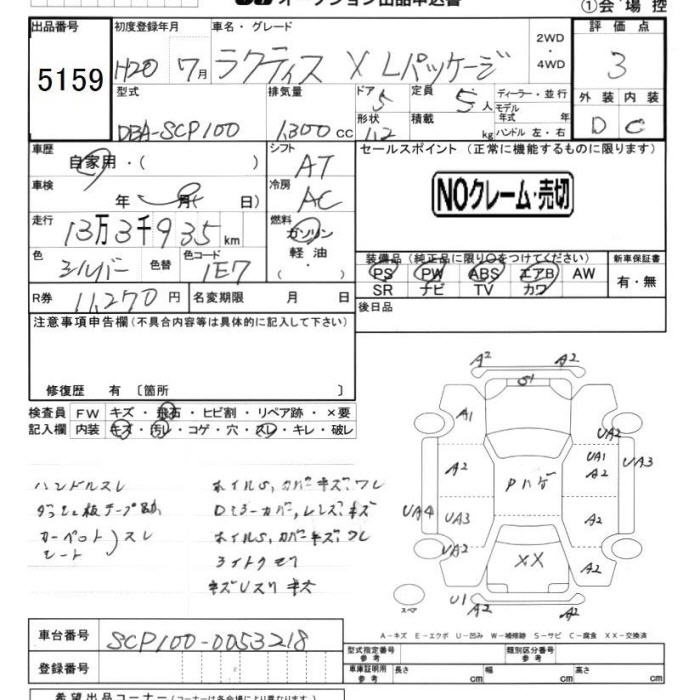 オークション出品申込書
①会場控
出品番号
初度登録年月
車名・グレード
評価点
5159
H20 7月
ラクティス X Lパッケージ
2WD
・
4WD
3
型式
排気量
ドア 5
定員 5人
ディーラー・並行
モデル
年式 年
外装
内装
DBA-SCP100
1,300cc
形状
積載 kg
ハンドル 左・右
D
C
車歴
自家用・( )
シフト
AT
セールスポイント (正常に機能するものに限ります)
車検
年 月( 日)
冷房
AC
NOクレーム・売切
走行
13万3千935km
燃料
ガソリン
軽油
・( ・ )
色
シルバー
色替
色コード
1E7
装備品 (純正品に限り○をつけてください)
新車保証書
PS PW ABS エアB AW
SR ナビ TV カワ
有・無
R券
11,270円
名変期限 月 日
後日品
注意事項申告欄(不具合内容等は具体的に記入して下さい)
修復歴 有 〔箇所 〕
検査員
記入欄
FW キズ・飛石・ヒビ割・リペア跡・×要
内装 キズ・汚レ・コゲ・穴・スレ・キレ・破レ
ハンドルスレ
カーペット
シート
スレ
ホイルS,カバーキズ,ワレ
Dミラーカバー,レンズ,キズ
ホイルS,カバーキズ,ワレ
ライトクモリ
キズUスリキズ
A2
A2
S1
A1
UA2
A2
UA1
UA3
Pハゲ
UA4
UA3
A2
UA2
XX
A2
U1
A2
スペア
A-キズ E-エクボ U-凹み W-補修跡 S-サビ C-腐食 XX-交換済
車台番号
SCP100-0053218
登録番号
型式指定番号
参考
類別区分番号
参考
車庫証明用
参考
長さ cm
幅 cm
高さ cm
希望出品コーナー(コーナーは各会場により異なります)